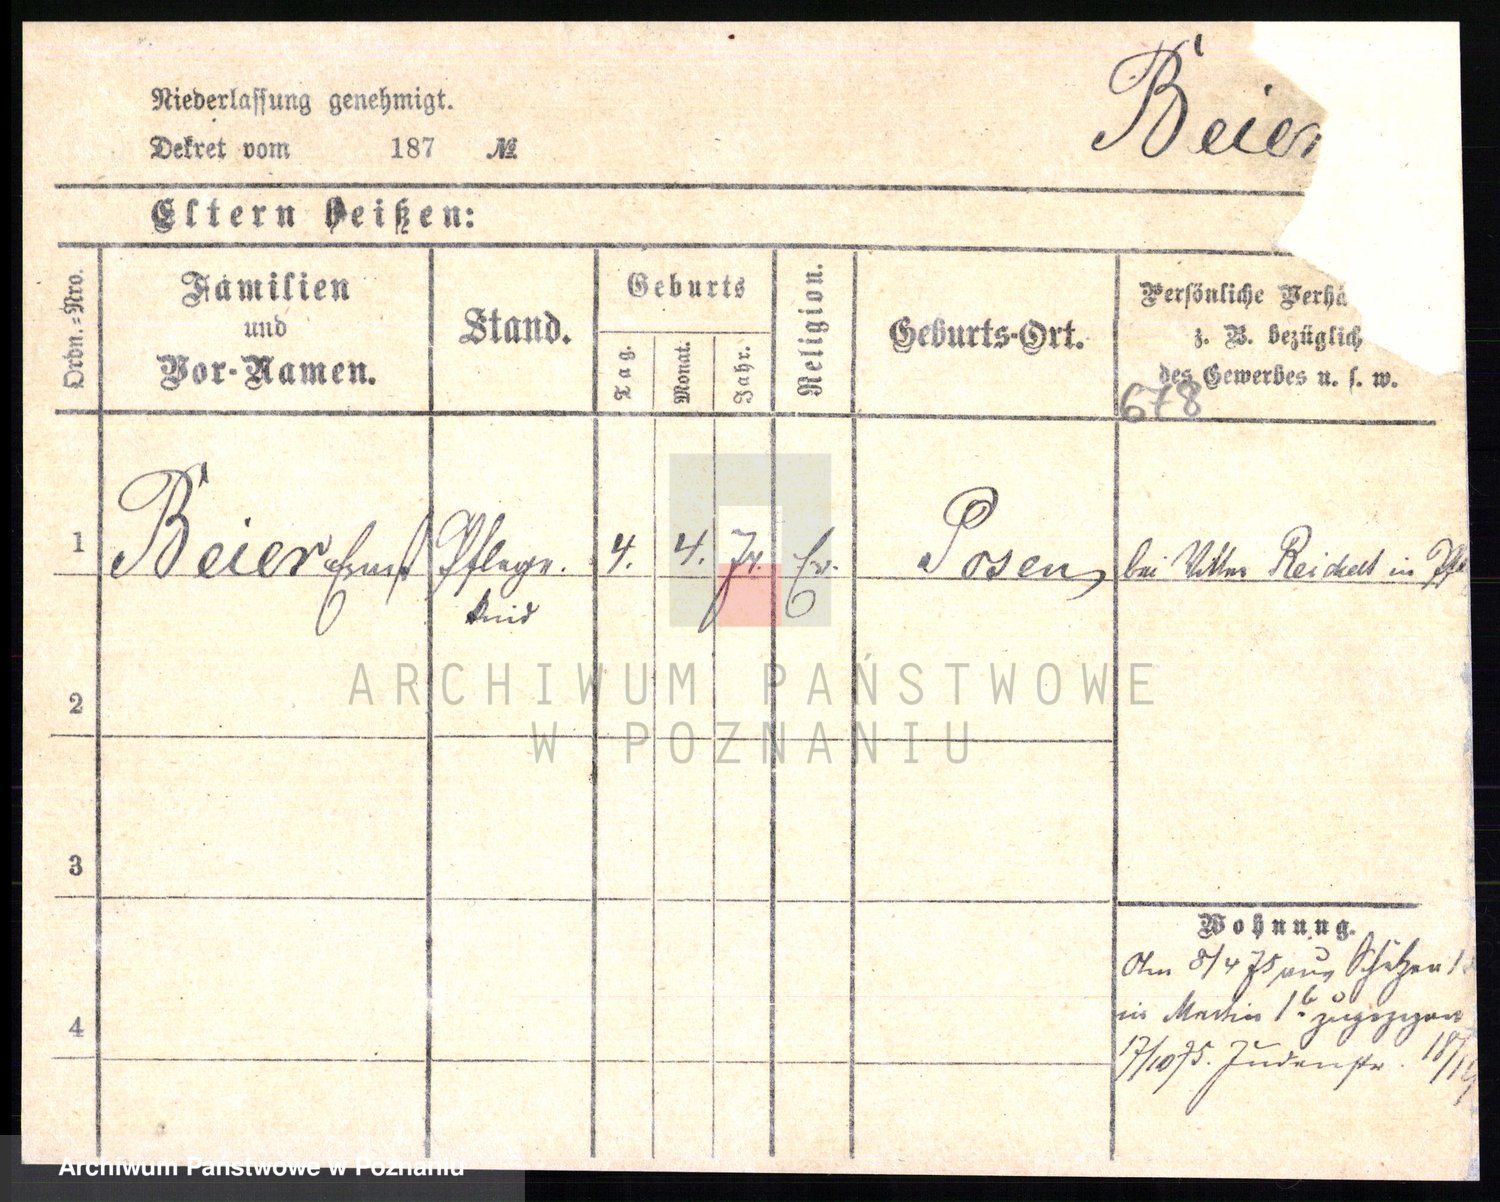 Beier
Niederlassung genehmigt.
Dekret vom 187 №
Eltern heißen:
Ordn.=Nro.
Familien
und
Vor-Namen.
Stand.
Geburts
Tag.
Monat.
Jahr.
Religion.
Geburts-Ort.
Persönliche Verhä
z. B. bezüglich
des Gewerbes u. s. w.
678
1 Beier Ernst Pflege. 4. 4. 74. Ev. Posen bei Reichelt in
kind
2
3
4
Wohnung.
Am 8/4 75 aus Schützen
in Martin 1b zugezogen
17/10 75. Judenstr. 18/19
ARCHIWUM PAŃSTWOWE
W POZNANIU
Archiwum Państwowe w Poznaniu